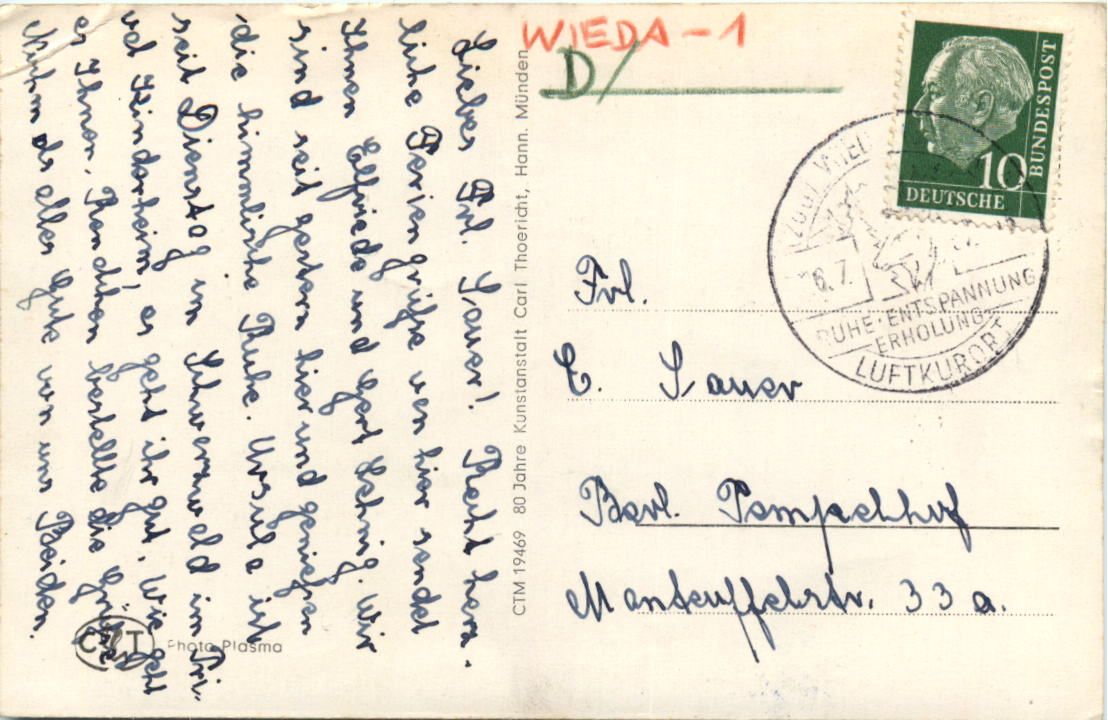 Lieber Frl. Sauer! Recht herz-
liche Feriengrüße von hier sendet
Ihnen Elfriede und Gert Schnig. Wir
sind seit gestern hier und genießen
die himmlische Ruhe. Ursula ist
seit Dienstag im Schwarzwald im Pri-
vat Kinderheim, es geht ihr gut. Wie geht
es Ihnen. Renchen bestellte die Grüße
alles Gute von uns Beiden.
CTM 19469 80 Jahre Kunstanstalt Carl Thoericht, Hann. Münden
Photo Plasma
WIEDA - 1
D/
10
DEUTSCHE
BUNDESPOST
8.7.
RUHE · ENTSPANNUNG
ERHOLUNG
LUFTKURORT
Frl.
E. Sauer
Berl. Tempelhof
Manteuffelstr. 33 a.